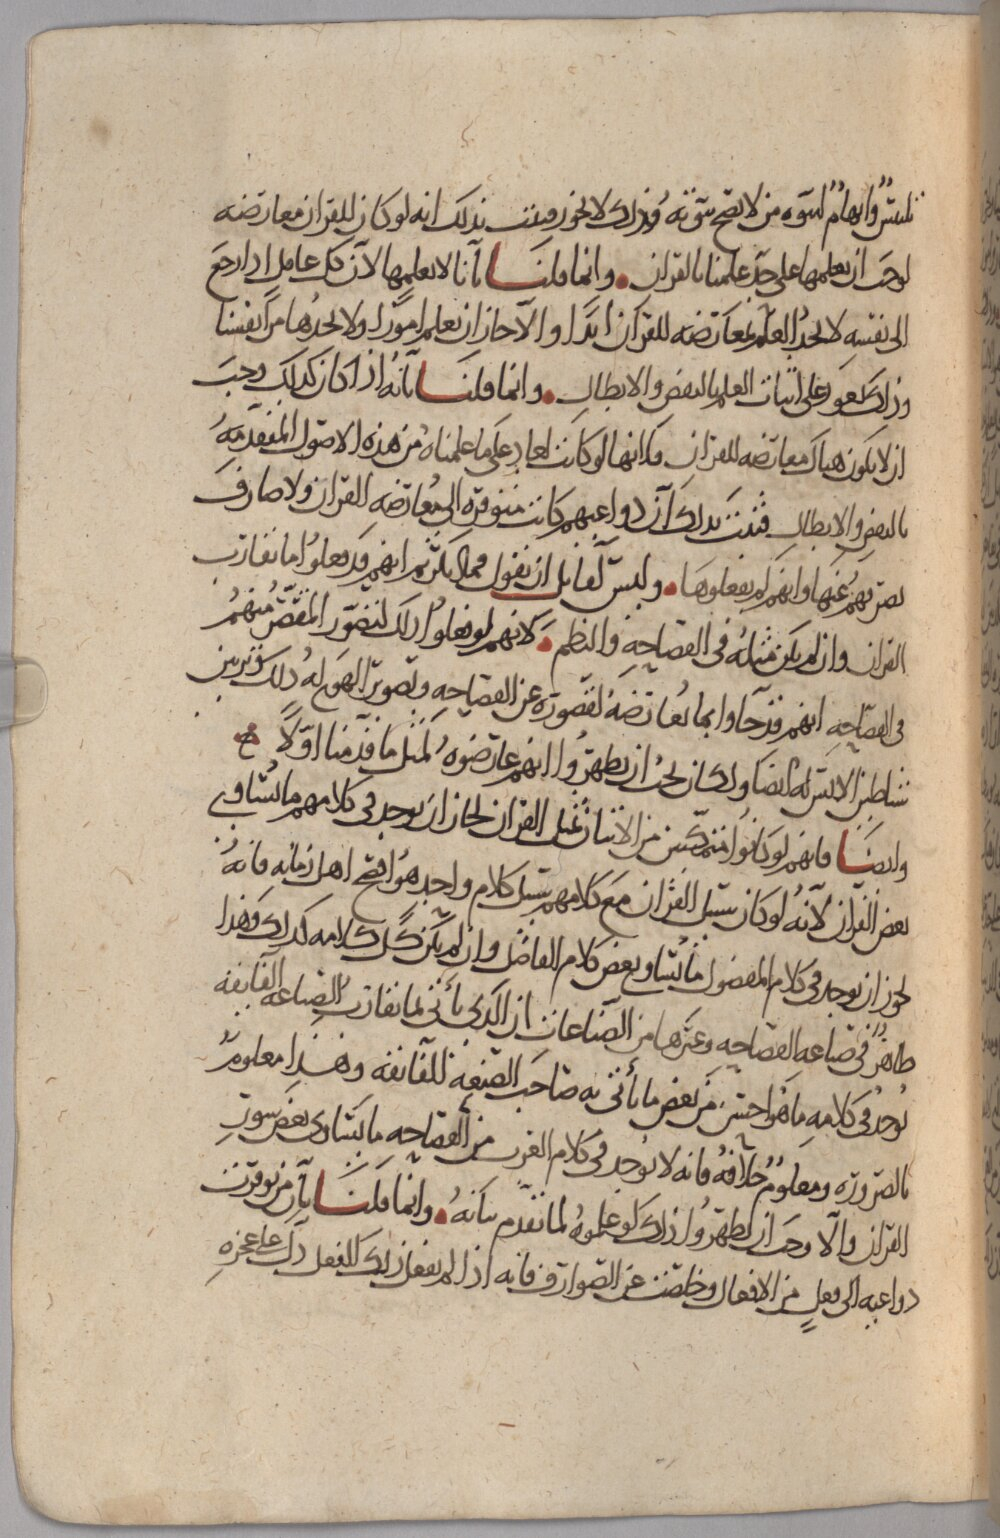 تلبيسٌ وايهامٌ لنبوه من لا تصح نبوته وذلك لا يجوز فثبت بذلك انه لو كان للقران معارضه
لوجب ان نعلمها على حد علمنا بالقران . وانما قلنا بانا لا نعلمها لان كل عاقل اذا رجع
الى نفسه لا يجد العلم بمعارضه للقران ابدا والا جاز ان نعلم امورا ولا نجدها من انفسنا
وذلك يعود على اثبات العلم بالنقض والابطال . وانما قلنا بانه اذا كان كذلك وجب
ان لا يكون هناك معارضه للقران فلانها لو كانت لعاد على ما علمناه من هذه الاصول المتقدمه
بالنقض والابطال فثبت بذلك ان دواعيهم كانت متوفره الى معارضه القران ولا صارف
يصرفهم عنها وانهم لم يفعلوها . وليس لقائل ان يقول فهلا يكن انهم قد فعلوا ما يقارب
القران وان لم يكن مثله في الفصاحه والنظم . لانهم لو فعلوا ذلك لتصور المقصر منهم
في الفصاحه انهم قد جاوا بما يعارضه لقصوره عن الفصاحه وتصوير الهوى له ذلك وتزيين
شياطين الانس له ايضا ولكان يجب ان يظهروا انهم عارضوه لمثل ما قدمنا اولا
وايضا فانهم لو كانوا متمكنين من الاتيان بمثل القران لجاز ان يوجد في كلامهم ما يساوي
بعض القران لانه لو كان سبيل القران مع كلامهم سبيل كلام واحد هو افصح اهل زمانه فانه
يجوز ان يوجد في كلام المفضول ما يساوي بعض كلام الفاضل وان لم يكن كل كلامه كذلك وهذا
ظاهر في صناعه الفصاحه وغيرها من الصناعات ان الذي يأتي بما يقارب الصناعه الفائقه
يوجد في كلامه ما هو احسن من بعض ما يأتي به صاحب الصنعه الفائقه وهذا معلوم
بالضروره ومعلوم خلافه فانه لا يوجد في كلام العرب من الفصاحه ما يساوي بعض سور
القران والا وجب ان يظهروا ذلك لو علموه لما تقدم بيانه . وانما قلنا بان من توفرت
دواعيه الى فعل من الافعال وخلصت عن الصوارف فانه اذا لم يفعل ذلك الفعل دل على عجزه